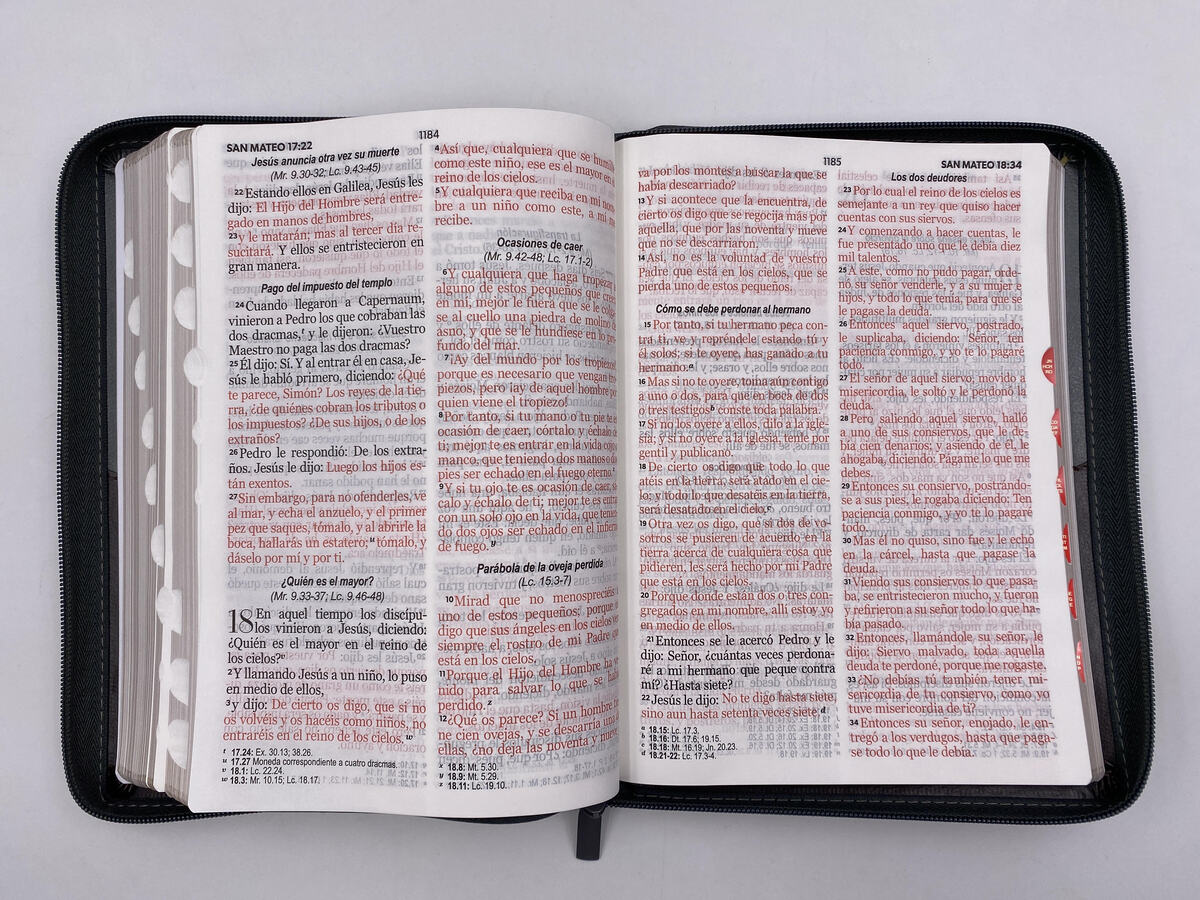 SAN MATEO 17:22
1184
Jesús anuncia otra vez su muerte
(Mr. 9.30-32; Lc. 9.43-45)
22 Estando ellos en Galilea, Jesús les
dijo: El Hijo del Hombre será entre-
gado en manos de hombres,
23 y le matarán; mas al tercer día re-
sucitará. Y ellos se entristecieron en
gran manera.
Pago del impuesto del templo
24 Cuando llegaron a Capernaum,
vinieron a Pedro los que cobraban las
dos dracmas,t y le dijeron: ¿Vuestro
Maestro no paga las dos dracmas?
25 Él dijo: Sí. Y al entrar él en casa, Je-
sús le habló primero, diciendo: ¿Qué
te parece, Simón? Los reyes de la tie-
rra, ¿de quiénes cobran los tributos o
los impuestos? ¿De sus hijos, o de los
extraños?
26 Pedro le respondió: De los extra-
ños. Jesús le dijo: Luego los hijos es-
tán exentos.
27 Sin embargo, para no ofenderles, ve
al mar, y echa el anzuelo, y el primer
pez que saques, tómalo, y al abrirle la
boca, hallarás un estatero;u tómalo, y
dáselo por mí y por ti.
¿Quién es el mayor?
(Mr. 9.33-37; Lc. 9.46-48)
18 En aquel tiempo los discípu-
los vinieron a Jesús, diciendo:
¿Quién es el mayor en el reino de
los cielos?v
2 Y llamando Jesús a un niño, lo puso
en medio de ellos,
3 y dijo: De cierto os digo, que si no
os volvéis y os hacéis como niños, no
entraréis en el reino de los cielos.w
t 17.24: Ex. 30.13; 38.26.
u 17.27 Moneda correspondiente a cuatro dracmas.
v 18.1: Lc. 22.24.
w 18.3: Mr. 10.15; Lc. 18.17.
4 Así que, cualquiera que se humille
como este niño, ese es el mayor en el
reino de los cielos.
5 Y cualquiera que reciba en mi nom-
bre a un niño como este, a mí me
recibe.
Ocasiones de caer
(Mr. 9.42-48; Lc. 17.1-2)
6 Y cualquiera que haga tropezar a
alguno de estos pequeños que creen
en mí, mejor le fuera que se le colgase
al cuello una piedra de molino de
asno, y que se le hundiese en lo pro-
fundo del mar.
7 ¡Ay del mundo por los tropiezos!
porque es necesario que vengan tro-
piezos, pero ¡ay de aquel hombre por
quien viene el tropiezo!
8 Por tanto, si tu mano o tu pie te es
ocasión de caer, córtalo y échalo de
ti; mejor te es entrar en la vida cojo o
manco, que teniendo dos manos o dos
pies ser echado en el fuego eterno.x
9 Y si tu ojo te es ocasión de caer, sá-
calo y échalo de ti; mejor te es entrar
con un solo ojo en la vida, que tenien-
do dos ojos ser echado en el infierno
de fuego.y
Parábola de la oveja perdida
(Lc. 15.3-7)
10 Mirad que no menospreciéis a
uno de estos pequeños; porque os
digo que sus ángeles en los cielos ven
siempre el rostro de mi Padre que
está en los cielos.
11 Porque el Hijo del Hombre ha ve-
nido para salvar lo que se había
perdido.z
12 ¿Qué os parece? Si un hombre tie-
ne cien ovejas, y se descarría una de
ellas, ¿no deja las noventa y nueve y
x 18.8: Mt. 5.30.
y 18.9: Mt. 5.29.
z 18.11: Lc. 19.10.
1185
SAN MATEO 18:34
va por los montes a buscar la que se
había descarriado?
13 Y si acontece que la encuentra, de
cierto os digo que se regocija más por
aquella, que por las noventa y nueve
que no se descarriaron.
14 Así, no es la voluntad de vuestro
Padre que está en los cielos, que se
pierda uno de estos pequeños.
Cómo se debe perdonar al hermano
15 Por tanto, si tu hermano peca con-
tra ti, ve y repréndele estando tú y
él solos; si te oyere, has ganado a tu
hermano.a
16 Mas si no te oyere, toma aún contigo
a uno o dos, para que en boca de dos
o tres testigosb conste toda palabra.
17 Si no los oyere a ellos, dilo a la igle-
sia; y si no oyere a la iglesia, tenle por
gentil y publicano.
18 De cierto os digo que todo lo que
atéis en la tierra, será atado en el cie-
lo; y todo lo que desatéis en la tierra,
será desatado en el cielo.c
19 Otra vez os digo, que si dos de vo-
sotros se pusieren de acuerdo en la
tierra acerca de cualquiera cosa que
pidieren, les será hecho por mi Padre
que está en los cielos.
20 Porque donde están dos o tres con-
gregados en mi nombre, allí estoy yo
en medio de ellos.
21 Entonces se le acercó Pedro y le
dijo: Señor, ¿cuántas veces perdona-
ré a mi hermano que peque contra
mí? ¿Hasta siete?
22 Jesús le dijo: No te digo hasta siete,
sino aun hasta setenta veces siete.d
a 18.15: Lc. 17.3.
b 18.16: Dt. 17.6; 19.15.
c 18.18: Mt. 16.19; Jn. 20.23.
d 18.21-22: Lc. 17.3-4.
Los dos deudores
23 Por lo cual el reino de los cielos es
semejante a un rey que quiso hacer
cuentas con sus siervos.
24 Y comenzando a hacer cuentas, le
fue presentado uno que le debía diez
mil talentos.
25 A este, como no pudo pagar, orde-
nó su señor venderle, y a su mujer e
hijos, y todo lo que tenía, para que se
le pagase la deuda.
26 Entonces aquel siervo, postrado,
le suplicaba, diciendo: Señor, ten
paciencia conmigo, y yo te lo pagaré
todo.
27 El señor de aquel siervo, movido a
misericordia, le soltó y le perdonó la
deuda.
28 Pero saliendo aquel siervo, halló
a uno de sus consiervos, que le de-
bía cien denarios; y asiendo de él, le
ahogaba, diciendo: Págame lo que me
debes.
29 Entonces su consiervo, postrando-
se a sus pies, le rogaba diciendo: Ten
paciencia conmigo, y yo te lo pagaré
todo.
30 Mas él no quiso, sino fue y le echó
en la cárcel, hasta que pagase la
deuda.
31 Viendo sus consiervos lo que pasa-
ba, se entristecieron mucho, y fueron
y refirieron a su señor todo lo que ha-
bía pasado.
32 Entonces, llamándole su señor, le
dijo: Siervo malvado, toda aquella
deuda te perdoné, porque me rogaste.
33 ¿No debías tú también tener mi-
sericordia de tu consiervo, como yo
tuve misericordia de ti?
34 Entonces su señor, enojado, le en-
tregó a los verdugos, hasta que paga-
se todo lo que le debía.